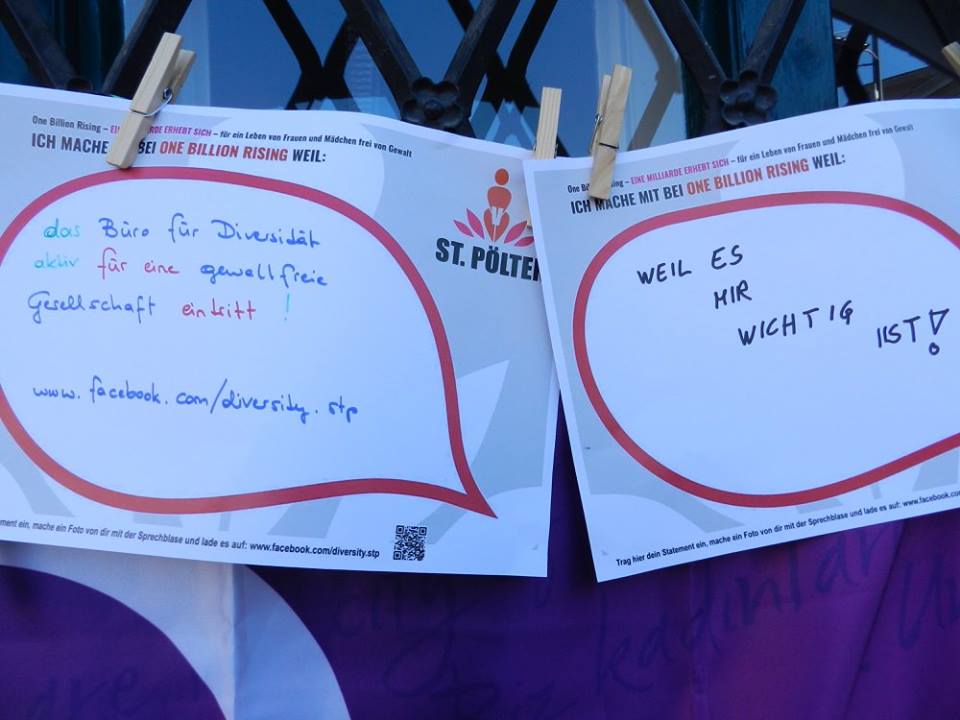 One Billion Rising – EINE MILLIARDE ERHEBT SICH – für ein Leben von Frauen und Mädchen frei von Gewalt
ICH MACHE BEI ONE BILLION RISING WEIL:
das Büro für Diversität
aktiv für eine gewaltfreie
Gesellschaft eintritt !
www.facebook.com/diversity.stp
ST. PÖLTE
ein, mache ein Foto von dir mit der Sprechblase und lade es auf: www.facebook.com/diversity.stp
One – EINE MILLIARDE ERHEBT SICH – für ein Leben von Frauen und Mädchen frei von Gewalt
ICH MACHE MIT BEI ONE BILLION RISING WEIL:
WEIL ES
MIR
WICHTIG
IIST!
Trag hier dein Statement ein, mache ein Foto von dir mit der Sprechblase und lade es auf: www.facebook.com
kadınlar
Biz